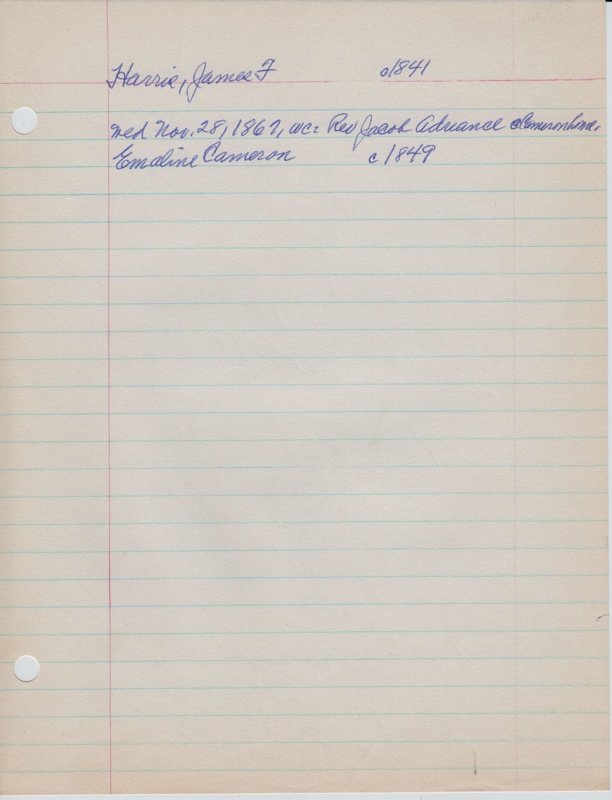 Harris, James F c1841
wed Nov. 28, 1867, wc: Rev Jacob Adriance @ Cameron home,
Emaline Cameron c1849